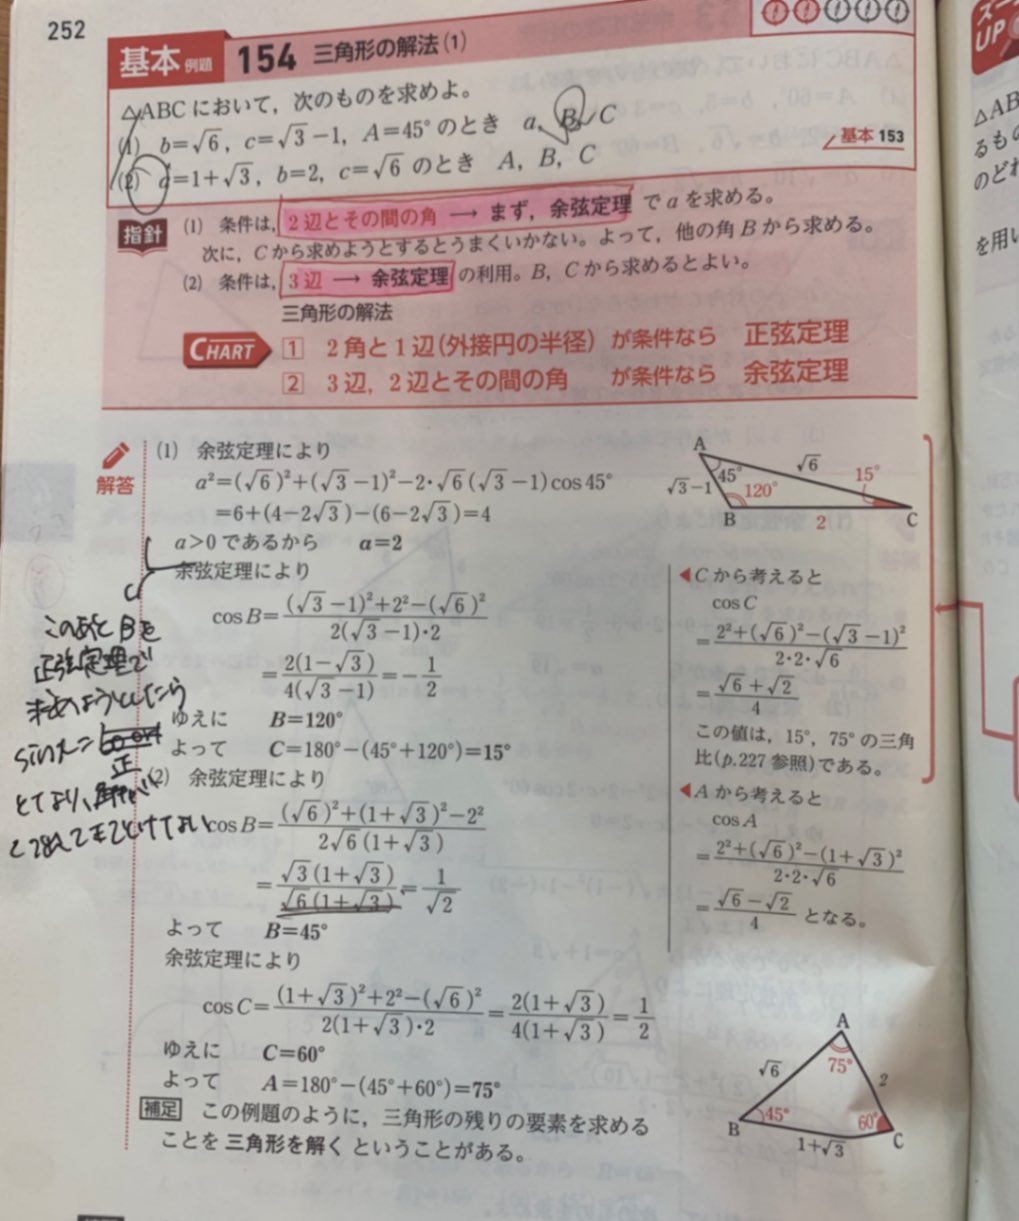 252
基本 例題 154 三角形の解法(1)
△ABC において，次のものを求めよ。
(1) b=√6，c=√3−1，A=45° のとき a，B，C
(2) a=1+√3，b=2，c=√6 のとき A，B，C
基本 153
指針
(1) 条件は，2辺とその間の角 → まず，余弦定理 で a を求める。
次に，C から求めようとするとうまくいかない。よって，他の角 B から求める。
(2) 条件は，3辺 → 余弦定理 の利用。B，C から求めるとよい。
三角形の解法
CHART
1 2角と1辺(外接円の半径) が条件なら 正弦定理
2 3辺，2辺とその間の角 が条件なら 余弦定理
解答
(1) 余弦定理により
a²=(√6)²+(√3−1)²−2・√6(√3−1)cos45°
=6+(4−2√3)−(6−2√3)=4
a>0 であるから a=2
余弦定理により
cosB=((√3−1)²+2²−(√6)²)/(2(√3−1)・2)
=2(1−√3)/(4(√3−1))=−1/2
ゆえに B=120°
よって C=180°−(45°+120°)=15°
(2) 余弦定理により
cosB=((√6)²+(1+√3)²−2²)/(2√6(1+√3))
=√3(1+√3)/(√6(1+√3))=1/√2
よって B=45°
余弦定理により
cosC=((1+√3)²+2²−(√6)²)/(2(1+√3)・2)=2(1+√3)/(4(1+√3))=1/2
ゆえに C=60°
よって A=180°−(45°+60°)=75°
補足 この例題のように，三角形の残りの要素を求める
ことを 三角形を解く ということがある。
このあと Bを
正弦定理で
求めようとしたら
sin
正
A
45°
√6
15°
√3−1
120°
B
2
C
◀C から考えると
cosC
=(2²+(√6)²−(√3−1)²)/(2・2・√6)
=(√6+√2)/4
この値は，15°，75° の三角
比(p.227 参照)である。
◀A から考えると
cosA
=(2²+(√6)²−(1+√3)²)/(2・2・√6)
=(√6−√2)/4 となる。
A
√6
75°
2
B
45°
60°
C
1+√3
UP
△AB
るもの
のどれ
を用い